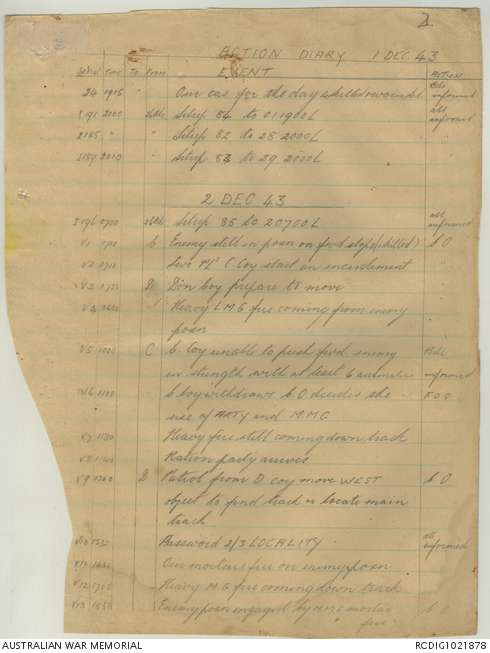 2
ACTION DIARY 1 DEC 43
Serial Time To From EVENT ACTION
24 1915 " Our cas for the day 2 killed wounded Bde informed
2000 Sitrep 84 to 011900L all informed
" " Sitrep 82 to 28 2000L "
2010 " Sitrep 83 to 29 2000L "
2 DEC 43
0700 Sitrep 85 to 20700L all informed
V1 C Enemy still in posn on fwd slope (killed) C O
V2 C Coy start an encirclement "
V3 D Don Coy prepare to move "
Heavy L.M.G fire coming from enemy
posn
V5 1000 C C Coy unable to push fwd enemy Bde
in strength with at least 6 automatics informed
1100 C Coy withdraws C O decides the F O O
use of ARTY and M.M.G
V7 1130 Heavy fire still coming down track
Ration party arrives
V9 1200 D Patrol from D Coy move WEST C O
object to find track or locate main
track
V10 1532 Password 2/3 LOCALITY all informed
V11 Our mortars fire on enemy posn
V12 Heavy M G fire coming down track
V13 Enemy posn engaged by M.M.G mortar C O
fire
AUSTRALIAN WAR MEMORIAL
RCDIG1021878